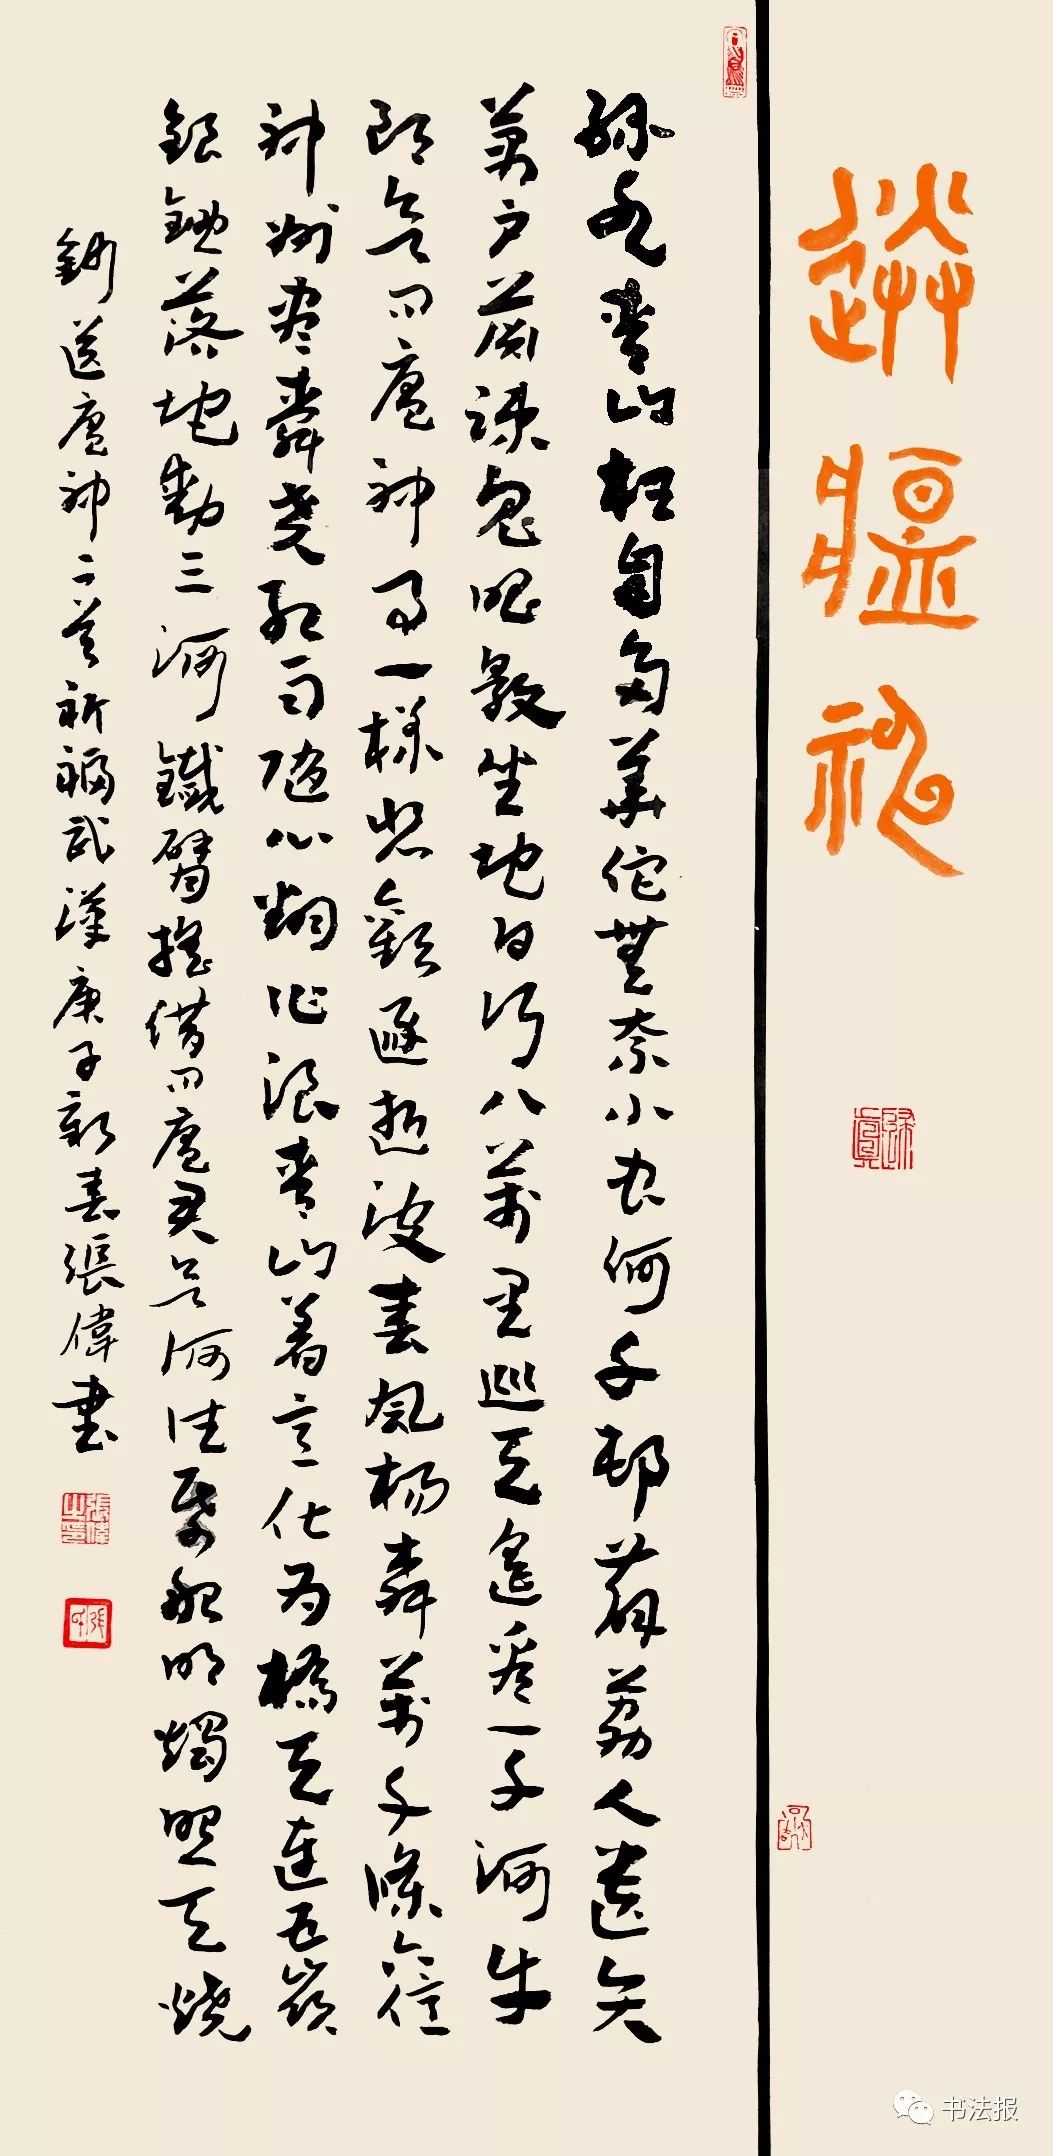 送瘟神
綠水青山枉自多華佗無奈小虫何千邨薜荔人遺矢
萬戶蕭疎鬼唱歌坐地日行八萬里巡天遙看一千河牛
郎欲問瘟神事一樣悲歡逐逝波春風楊柳萬千條六億
神州盡舜堯紅雨隨心翻作浪青山着意化為橋天連五嶺
銀鋤落地動三河鐵臂搖借問瘟君欲何往紙船明燭照天燒
鈔送瘟神二首祈福武漢庚子新春張偉書
張偉之印
书法报